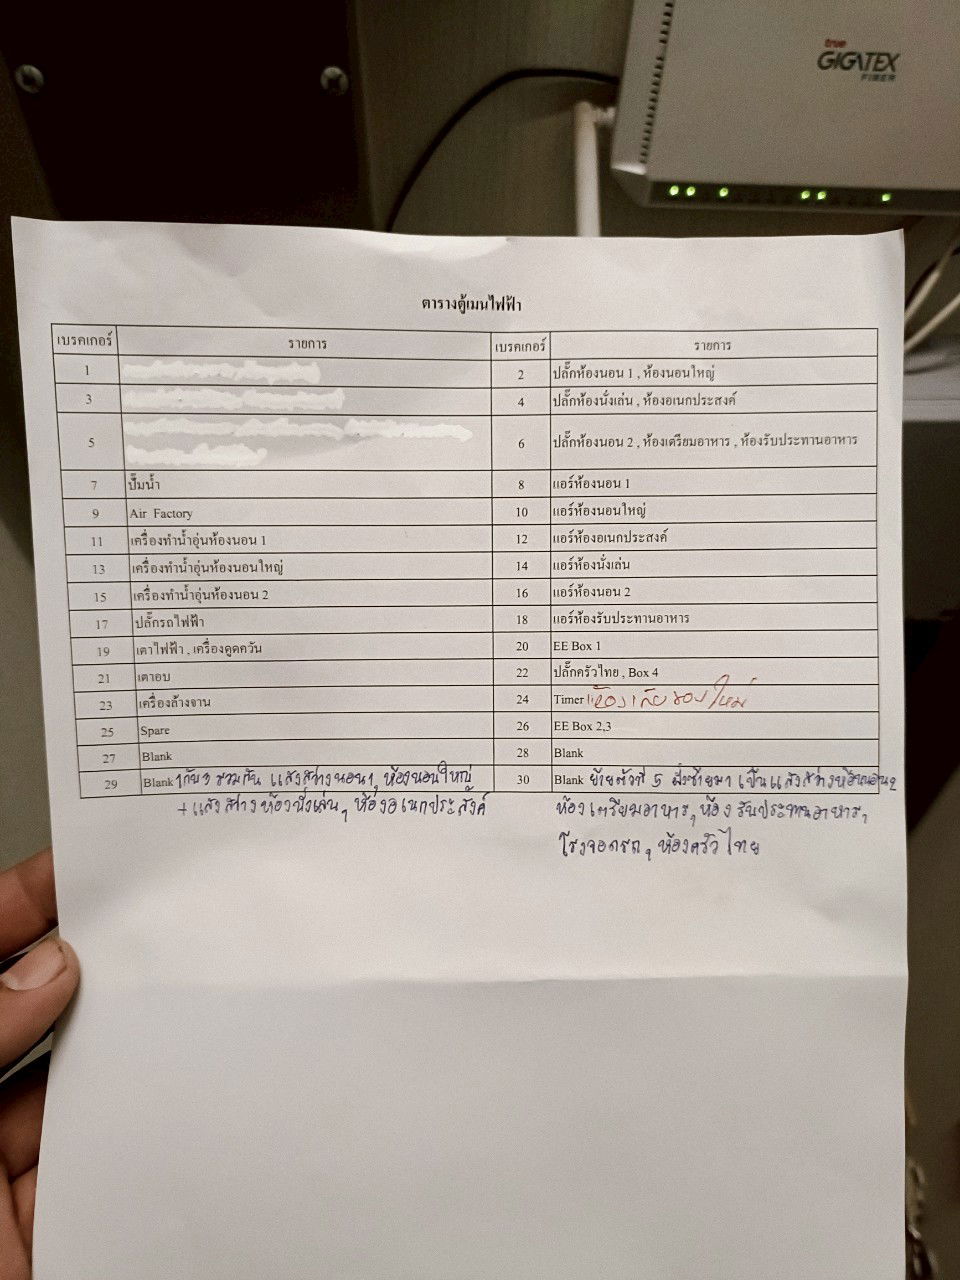 true
GIGATEX
FIBER
ตารางตู้เมนไฟฟ้า
เบรคเกอร์ รายการ เบรคเกอร์ รายการ
1 2 ปลั๊กห้องนอน 1 , ห้องนอนใหญ่
3 4 ปลั๊กห้องนั่งเล่น , ห้องอเนกประสงค์
5 6 ปลั๊กห้องนอน 2 , ห้องเตรียมอาหาร , ห้องรับประทานอาหาร
7 ปั๊มน้ำ 8 แอร์ห้องนอน 1
9 Air Factory 10 แอร์ห้องนอนใหญ่
11 เครื่องทำน้ำอุ่นห้องนอน 1 12 แอร์ห้องอเนกประสงค์
13 เครื่องทำน้ำอุ่นห้องนอนใหญ่ 14 แอร์ห้องนั่งเล่น
15 เครื่องทำน้ำอุ่นห้องนอน 2 16 แอร์ห้องนอน 2
17 ปลั๊กรถไฟฟ้า 18 แอร์ห้องรับประทานอาหาร
19 เตาไฟฟ้า , เครื่องดูดควัน 20 EE Box 1
21 เตาอบ 22 ปลั๊กครัวไทย , Box 4
23 เครื่องล้างจาน 24 Timer
25 Spare 26 EE Box 2,3
27 Blank 28 Blank
29 Blank 1กับ3 รวมกัน แสงสว่างนอน1, ห้องนอนใหญ่ 30 Blank ย้ายตัวที่ 5 ฝั่งซ้ายมา เป็นแสงสว่างห้องนอน2
+ แสงสว่างห้องนั่งเล่น, ห้องอเนกประสงค์ ห้องเตรียมอาหาร, ห้องรับประทานอาหาร,
โรงจอดรถ, ห้องครัวไทย